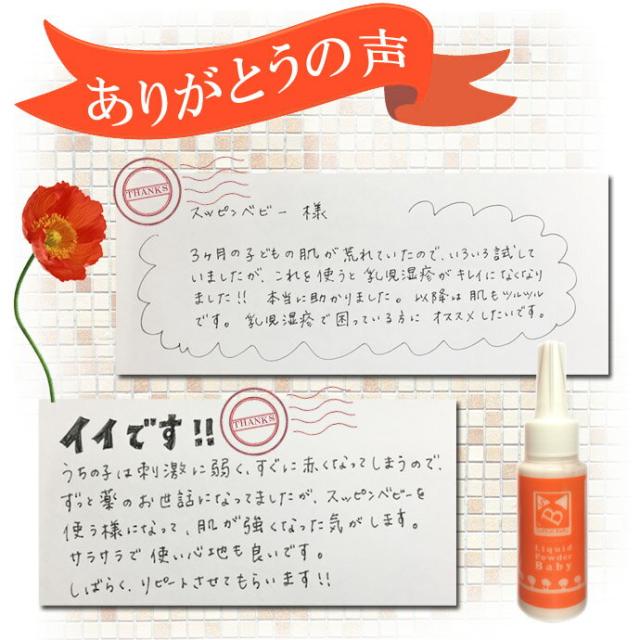 ありがとうの声
THANKS
スッピンベビー 様
3ヶ月の子どもの肌が荒れていたので、いろいろ試して
いましたが、これを使うと乳児湿疹がキレイになくなり
ました!! 本当に助かりました。以降は肌もツルツル
です。乳児湿疹で困っている方に オススメしたいです。
イイです!!
THANKS
うちの子は刺激に弱く、すぐに赤くなってしまうので、
ずっと薬のお世話になってましたが、スッピンベビーを
使う様になって、肌が強くなった気がします。
サラサラで使い心地も良いです。
しばらく、リピートさせてもらいます!!
B
Liquid
Powder
Baby